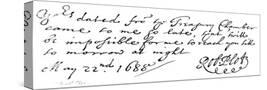 Yrs dated frō yr Treasury Chamber
came to me so late, that twill
be impossible for me to reach you till
to morrow at night
May 22nd. 1688
Rob. Plot